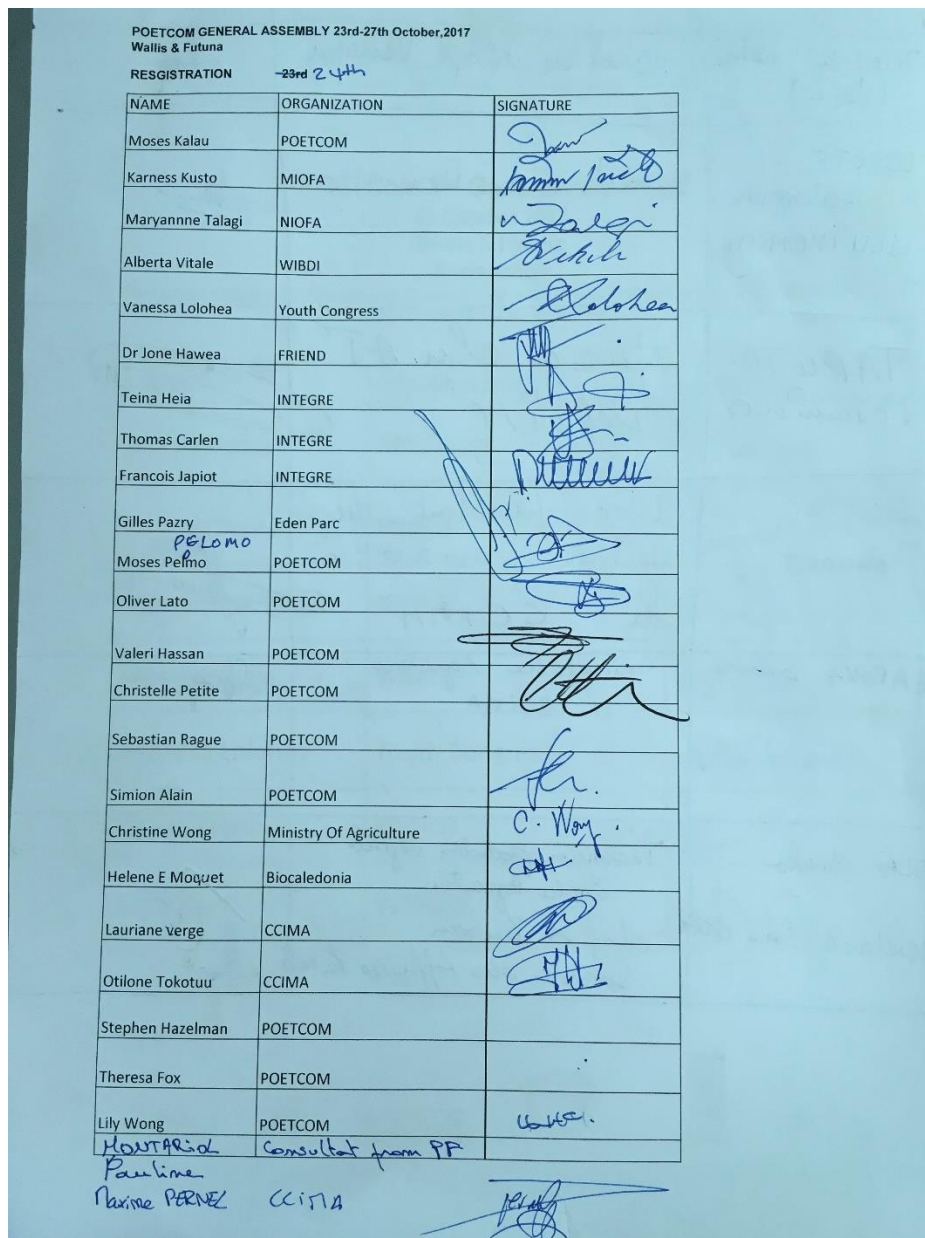 POETCOM GENERAL ASSEMBLY 23rd-27th October,2017
Wallis & Futuna
RESGISTRATION 23rd 24th
NAME ORGANIZATION SIGNATURE
Moses Kalau POETCOM
Karness Kusto MIOFA
Maryannne Talagi NIOFA
Alberta Vitale WIBDI
Vanessa Lolohea Youth Congress
Dr Jone Hawea FRIEND
Teina Heia INTEGRE
Thomas Carlen INTEGRE
Francois Japiot INTEGRE
Gilles Pazry Eden Parc
PELOMO
Moses Pelmo POETCOM
Oliver Lato POETCOM
Valeri Hassan POETCOM
Christelle Petite POETCOM
Sebastian Rague POETCOM
Simion Alain POETCOM
Christine Wong Ministry Of Agriculture C. Wong.
Helene E Moquet Biocaledonia
Lauriane verge CCIMA
Otilone Tokotuu CCIMA
Stephen Hazelman POETCOM
Theresa Fox POETCOM
Lily Wong POETCOM
MONTARIOL Consultat from PF
Pauline
Maxime PERNEL CCIMA